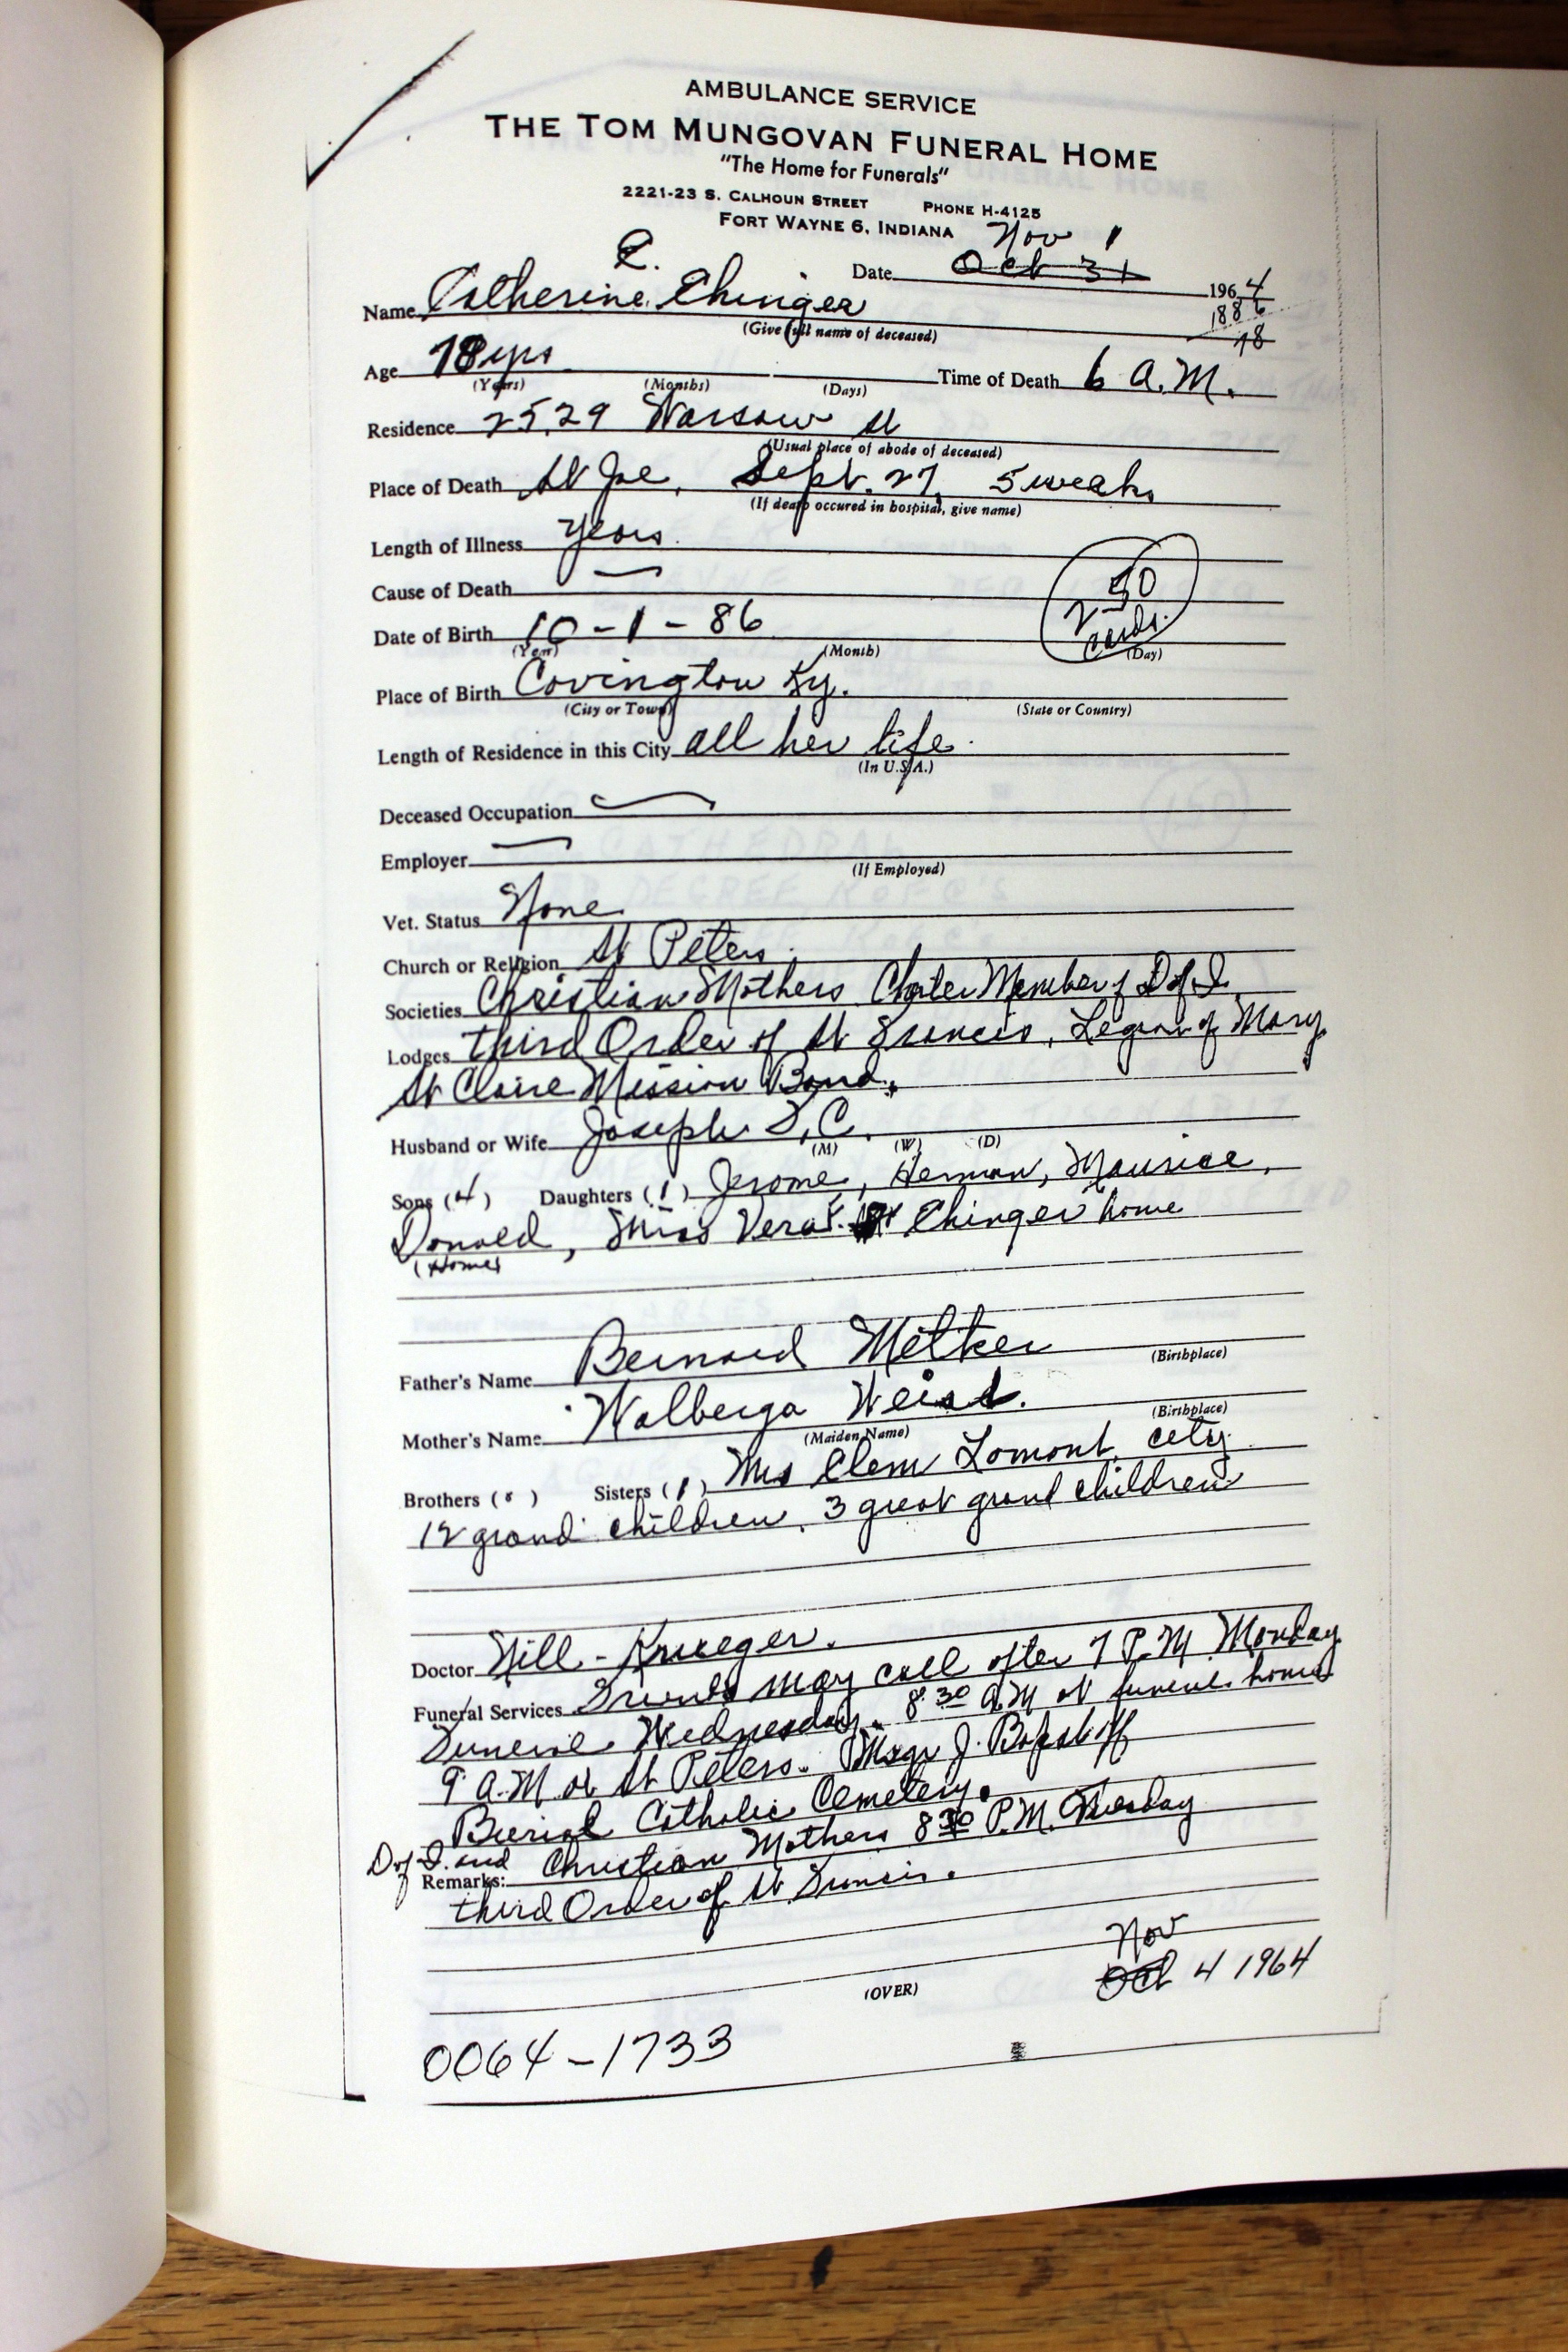 AMBULANCE SERVICE
THE TOM MUNGOVAN FUNERAL HOME
"The Home for Funerals"
2221-23 S. CALHOUN STREET PHONE H-4125
FORT WAYNE 6, INDIANA
Nov 1
Date Oct 31 1964
1886
78
C.
Name Catherine Ehinger
(Give full name of deceased)
Age 78 yrs Time of Death 6 A.M.
(Years) (Months) (Days)
Residence 2529 Warsaw St
(Usual place of abode of deceased)
Place of Death St Joe, Sept. 27, 5 weeks
(If death occured in hospital, give name)
Length of Illness Years
Cause of Death —
50
Date of Birth 10-1-86
2 cards.
(Year) (Month) (Day)
Place of Birth Covington Ky.
(City or Town) (State or Country)
Length of Residence in this City all her life.
(In U.S.A.)
Deceased Occupation —
Employer —
(If Employed)
Vet. Status None
Church or Religion St Peters
Societies Christian Mothers Charter Member of D of I
Lodges third Order of St Francis, Legion of Mary
St Claire Mission Band.
Husband or Wife Joseph D.C.
(M) (W) (D)
Sons (4) Daughters (1) Jerome, Herman, Maurice,
Donald, Miss Vera Ehinger home
(Home)
Father's Name Bernard Metker
(Birthplace)
Mother's Name Walberga Weist.
(Maiden Name) (Birthplace)
Brothers ( ) Sisters (1) Mrs Clem Lomont, city
12 grand children, 3 great grand children
Doctor Hill - Krueger.
Funeral Services Friends may call after 7 P.M. Monday
Funeral Wednesday. 8:30 A.M at funeral home
9 A.M at St Peters. Msgr J. Bapst off
Burial Catholic Cemetery.
D of I. and Christian Mothers 8:30 P.M. Tuesday
Remarks:
third Order of St Francis.
Nov
(OVER) Oct 4 1964
0064-1733